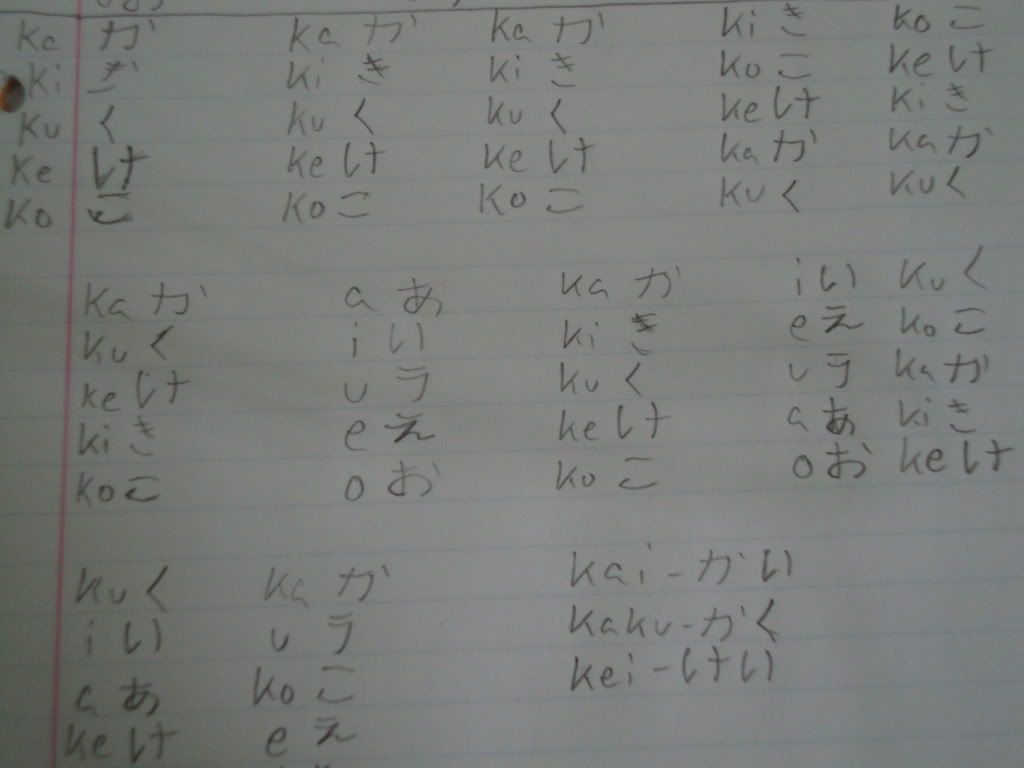 ka か ka か ka か ki き ko こ
ki き ki き ki き ko こ ke け
ku く ku く ku く ke け ki き
ke け ke け ke け ka か ka か
ko こ ko こ ko こ ku く ku く
ka か a あ ka か i い ku く
ku く i い ki き e え ko こ
ke け u う ku く u う ka か
ki き e え ke け a あ ki き
ko こ o お ko こ o お ke け
ku く ka か kai-かい
i い u う kaku-かく
a あ ko こ kei-けい
ke け e え